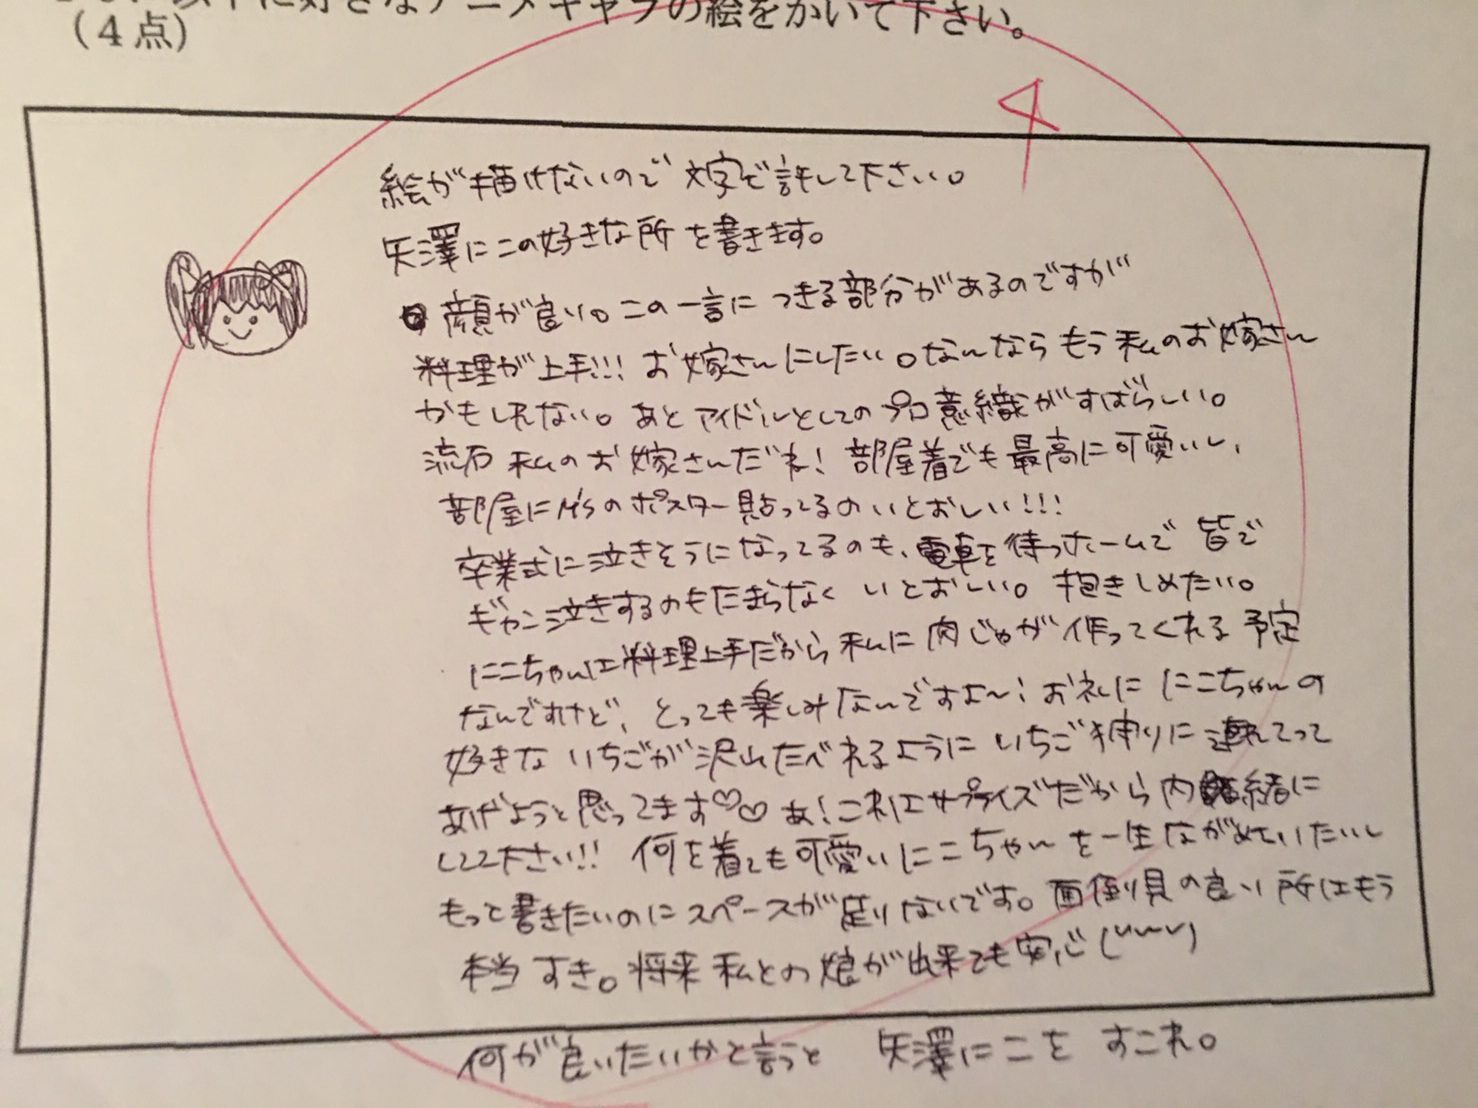 以下に好きなアニメキャラの絵をかいて下さい。
(4点)
4
絵が描けないので文字で許して下さい。
矢澤にこの好きな所を書きます。
顔が良い。この一言につきる部分があるのですが
料理が上手!!! お嫁さんにしたい。なんならもう私のお嫁さん
かもしれない。あとアイドルとしてのプロ意織がすばらしい。
流石私のお嫁さんだね! 部屋着でも最高に可愛いし、
部屋にμ'sのポスター貼ってるのいとおしい!!!
卒業式に泣きそうになってるのも、電車を待つホームで皆で
ギャン泣きするのもたまらなくいとおしい。抱きしめたい。
にこちゃんは料理上手だから私に肉じゃが作ってくれる予定
なんですけど、とっても楽しみなんですよ〜! お礼ににこちゃんの
好きないちごが沢山たべれるようにいちご狩りに連れてって
あげようと思ってます♡♡ あ! これはサプライズだから内緒に
してて下さい!! 何を着ても可愛いにこちゃんを一生ながめていたいし
もっと書きたいのにスペースが足りないです。面倒見の良い所はもう
本当すき。将来私との娘が出来ても安心
何が良いたいかと言うと 矢澤にこをすこれ。